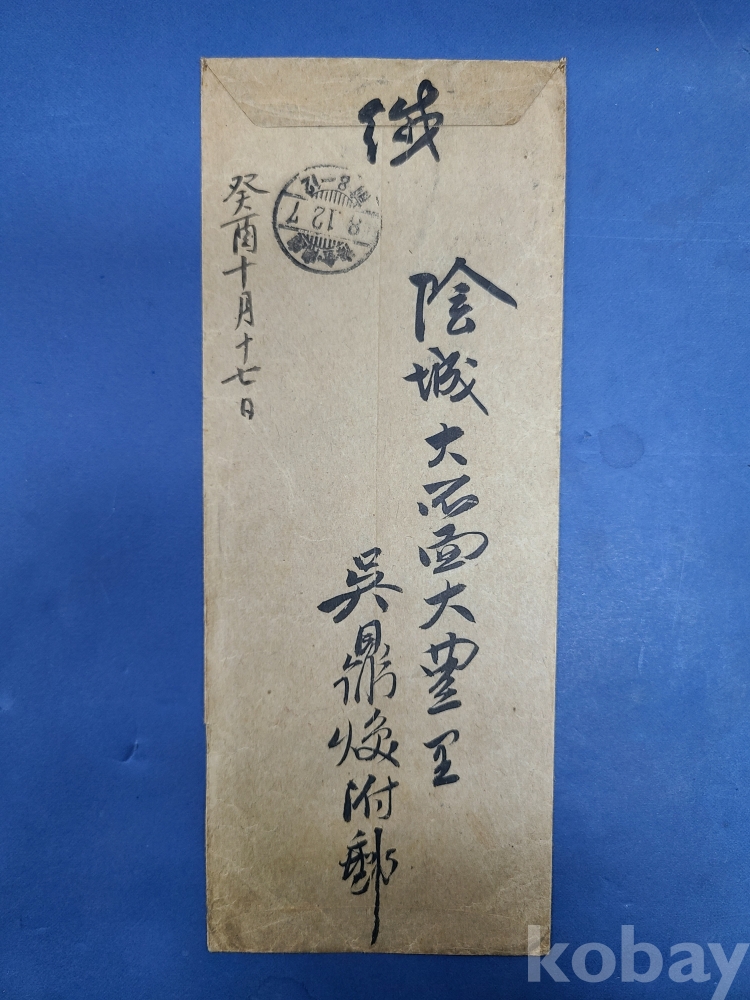 緘
陰城大所面大豊里
吳鼎煥附郵
癸酉十月十七日
8.12.7
kobay